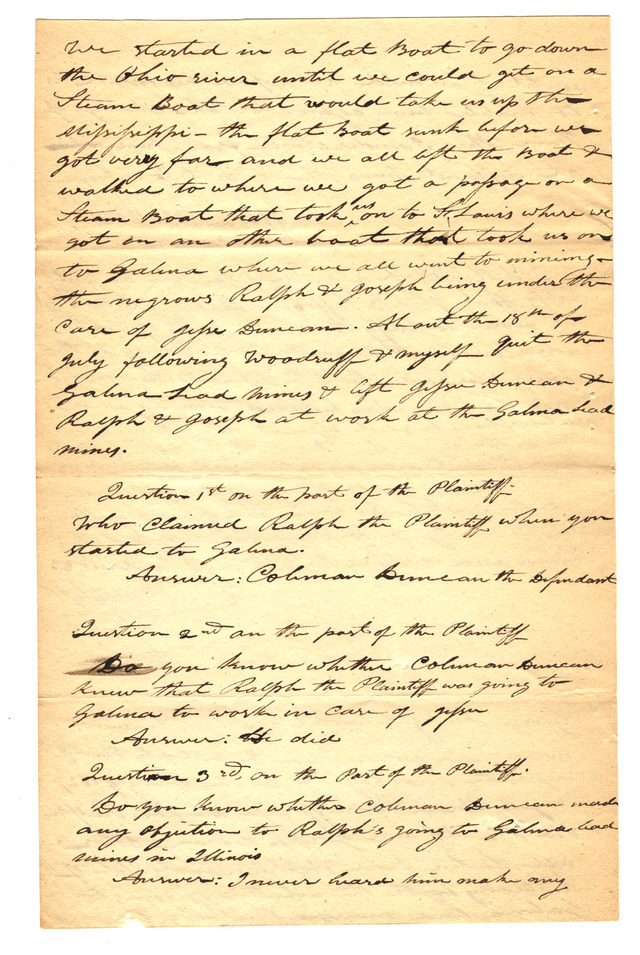 We started in a flat Boat to go down
the Ohio river until we could get on a
Steam Boat that would take us up the
Missisippi - the flat Boat sunk before we
got very far and we all left the Boat &
walked to where we got a passage on a
Steam Boat that took us on to St. Louis where we
got on an other boat that took us on
to Galina where we all went to mining -
the negrows Ralph & Joseph being under the
Care of Jesse Duncan. About the 18th of
July following Woodruff & myself quit the
Galina Lead Mines & left Jesse Duncan &
Ralph & Joseph at work at the Galina Lead
mines.
Question 1st on the part of the Plaintiff
Who Claimed Ralph the Plaintiff when you
started to Galina.
Answer: Coleman Duncan the Defendant
Question 2nd on the part of the Plaintiff
Do you know whether Coleman Duncan
knew that Ralph the Plaintiff was going to
Galina to work in care of Jesse
Answer: He did
Question 3rd, on the Part of the Plaintiff.
Do you know whether Coleman Duncan made
any objection to Ralph's going to Galina lead
mines in Illinois
Answer: I never heard him make any